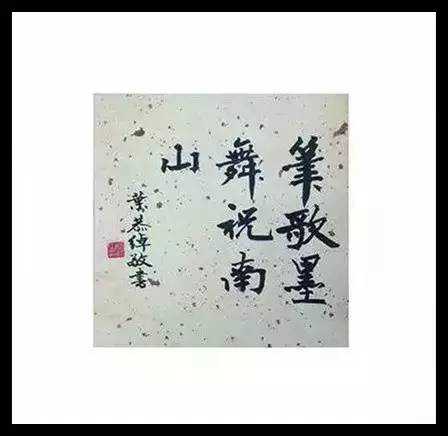 筆歌墨
舞祝南
山
葉恭綽敬書